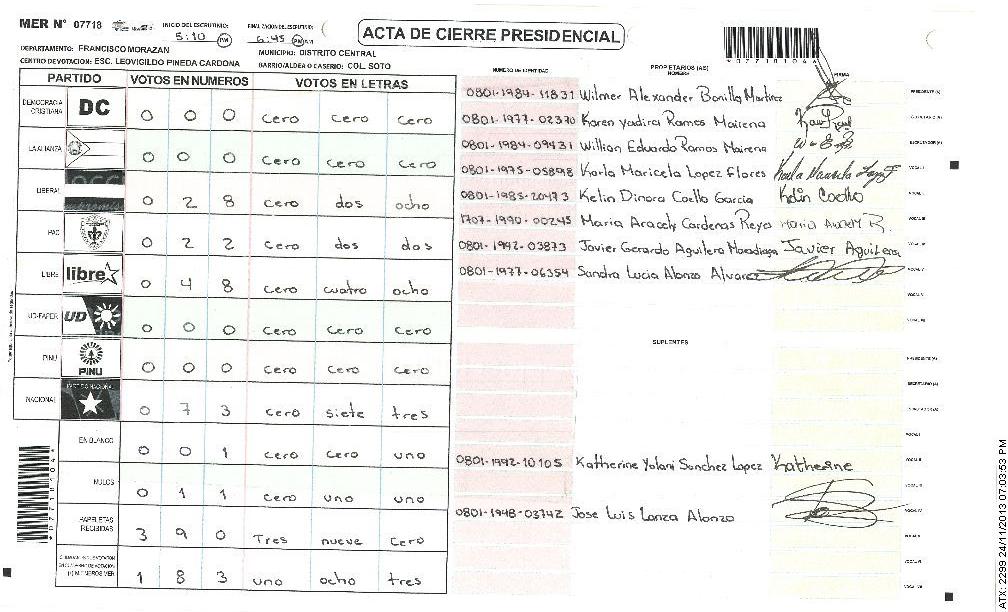 MER N° 07718 INICIO DEL ESCRUTINIO: 5:10 PM FINALIZACION DEL ESCRUTINIO: 6:45 PM
ACTA DE CIERRE PRESIDENCIAL
*077181046*
DEPARTAMENTO: FRANCISCO MORAZAN MUNICIPIO: DISTRITO CENTRAL
CENTRO DE VOTACION: ESC. LEOVIGILDO PINEDA CARDONA BARRIO/ALDEA O CASERIO: COL. SOTO
PARTIDO VOTOS EN NUMEROS VOTOS EN LETRAS
DEMOCRACIA CRISTIANA DC 0 0 0 cero cero cero
LA ALIANZA 0 0 0 cero cero cero
LIBERAL 0 2 8 cero dos ocho
PAC 0 2 2 cero dos dos
LIBRE libre 0 4 8 cero cuatro ocho
UD-FAPER UD 0 0 0 cero cero cero
PINU PINU 0 0 0 cero cero cero
NACIONAL PARTIDO NACIONAL 0 7 3 cero siete tres
EN BLANCO 0 0 1 cero cero uno
NULOS 0 1 1 cero uno uno
PAPELETAS RECIBIDAS 3 9 0 Tres nueve cero
1 8 3 uno ocho tres
NUMERO DE IDENTIDAD PROPIETARIOS (AS) NOMBRE FIRMA
0801-1984-11831 Wilmer Alexander Bonilla Martinez PRESIDENTE (A)
0801-1977-02370 Karen Yadira Ramos Mairena SECRETARIO (A)
0801-1984-09431 Willian Eduardo Ramos Mairena ESCRUTADOR (A)
0801-1975-05898 Karla Maricela Lopez Flores VOCAL I
0801-1985-20473 Kelin Dinora Coello Garcia Kelin Coello
1707-1990-00245 Maria Aracely Cardenas Reyes
0801-1992-03873 Javier Gerardo Aguilera Javier Aguilera
0801-1977-06354 Sandra Lucia Alonzo Alvarez
SUPLENTES
PRESIDENTE (A)
SECRETARIO (A)
0801-1992-10105 Katherine Yolani Sanchez Lopez Katherine
0801-1948-03742 Jose Luis Lanza Alonzo
ATX: 2299 24/11/2013 07:03:53 PM